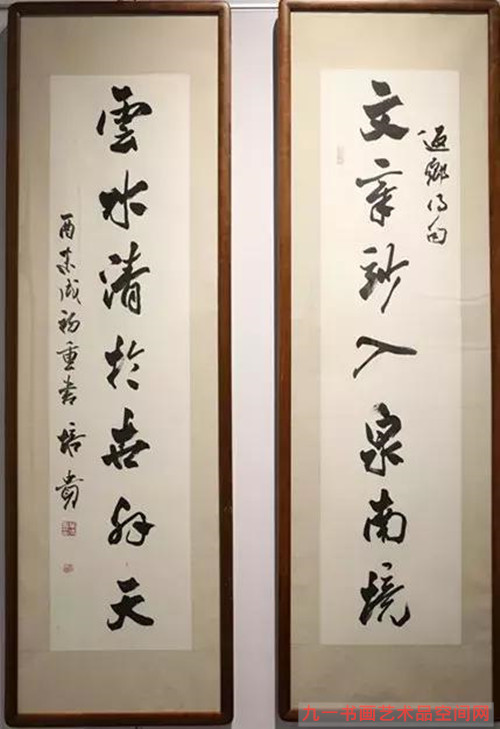 返鄉得句
文章妙入泉南境
雲水清於世外天
酉末戌初重書 培貴
九一书画艺术品空间网